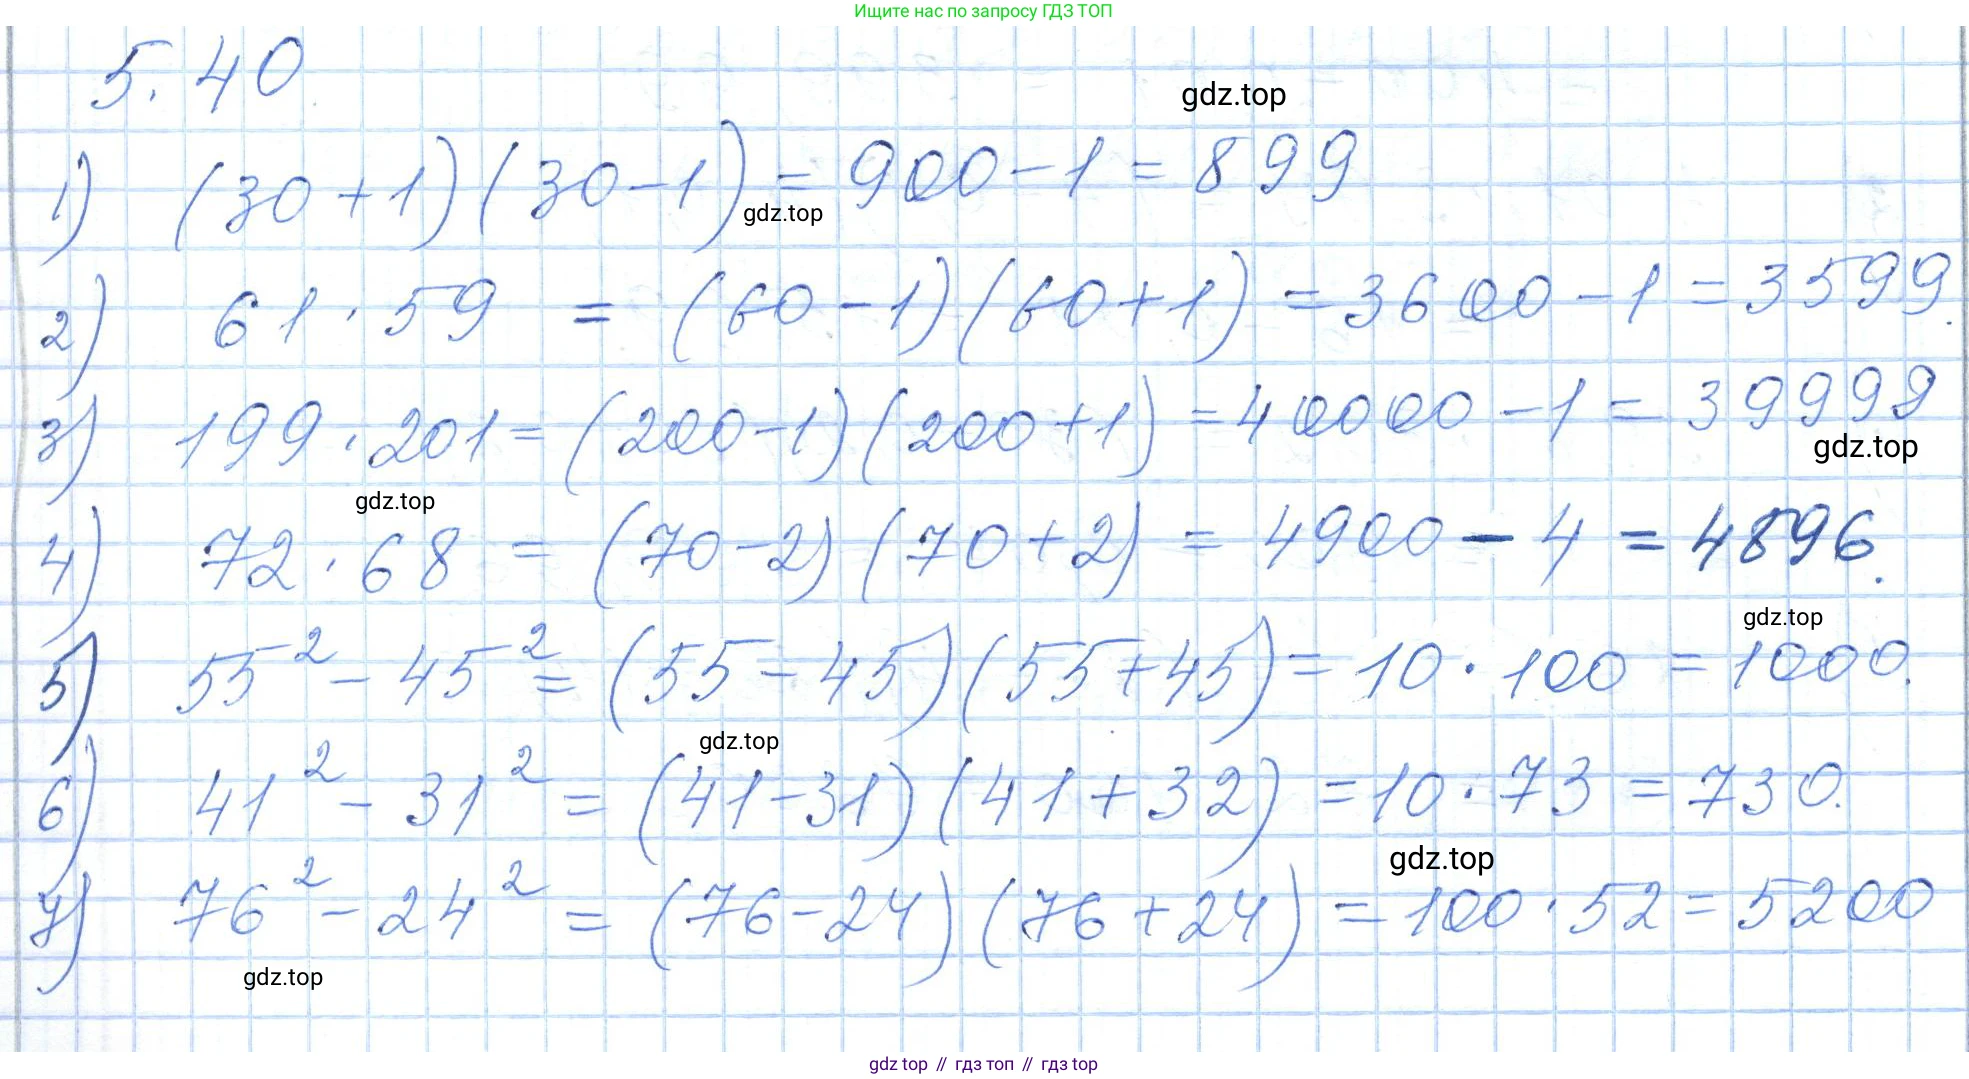 Ищите нас по запросу ГДЗ ТОП
5.40
gdz.top
1) (30+1)(30-1) = 900 - 1 = 899
gdz.top
2) 61 · 59 = (60-1)(60+1) = 3600 - 1 = 3599.
3) 199 · 201 = (200-1)(200+1) = 40000 - 1 = 39999
gdz.top
gdz.top
4) 72 · 68 = (70-2)(70+2) = 4900 - 4 = 4896.
gdz.top
5) 55² - 45² = (55-45)(55+45) = 10 · 100 = 1000.
gdz.top
6) 41² - 31² = (41-31)(41+32) = 10 · 73 = 730.
gdz.top
7) 76² - 24² = (76-24)(76+24) = 100 · 52 = 5200
gdz.top
gdz top // гдз топ // гдз top